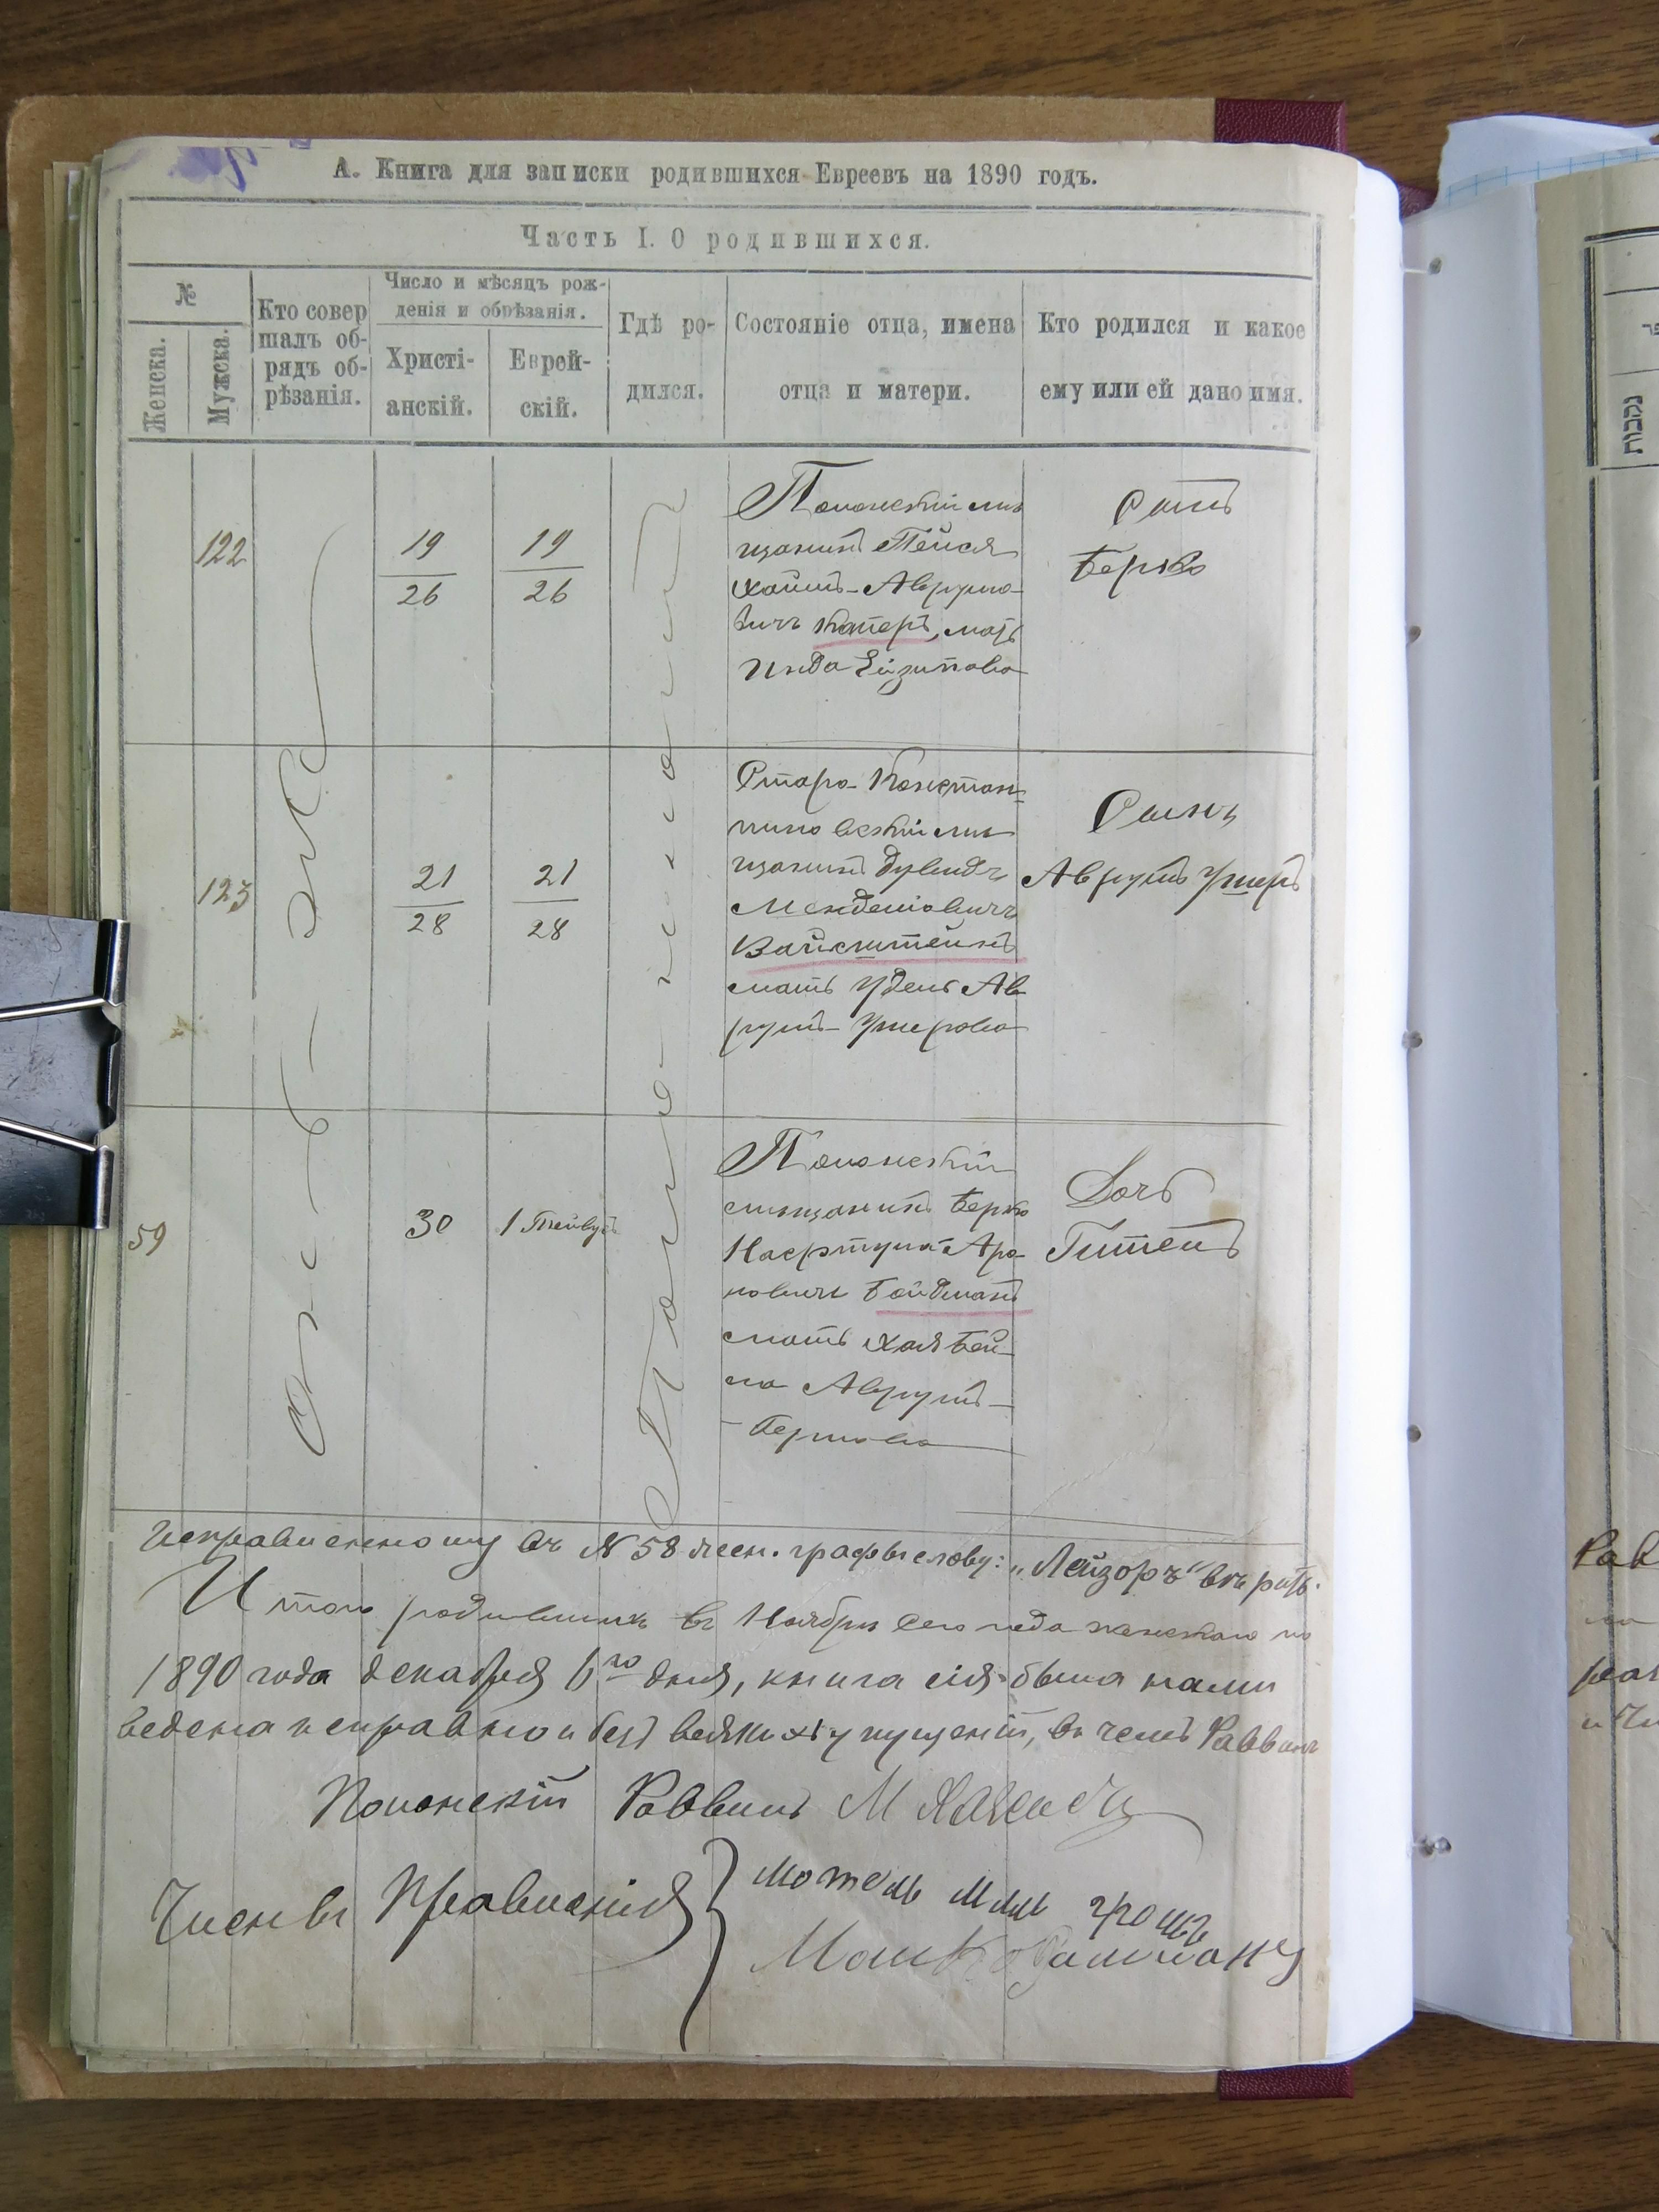 А. Книга для записки родившихся Евреевъ на 1890 годъ.
Часть I. О родившихся.
№
Женска.
Мужска.
Кто совер
шалъ об-
рядъ об-
рѣзанія.
Число и мѣсяцъ рож-
денія и обрѣзанія.
Христі-
анскій.
Еврей-
скій.
Гдѣ ро-
дился.
Состояніе отца, имена
отца и матери.
Кто родился и какое
ему или ей дано имя.
122
19
26
19
26
Полонскій мѣ
щанинъ Пейся
Хаимъ-Аврумо-
вичъ Каперъ, мать
Инда
Сынъ
Берко
123
21
28
21
28
Старо-Констан=
тиновскій мѣ
щанинъ Дувидъ
Менделіовичъ
Вайсштейнъ
мать Удель Ав
румъ-Ушерова
Сынъ
Аврумъ Ушеръ
59
30
1 Тейвусъ
Полонскій
мѣщанинъ Берко
Насртула Аро
новичъ Бойдманъ
мать Хая Бей-
ла Аврумъ-
-Берковa
Дочь
Гитель
Въ Полонномъ
Исправленному въ № 58 женс. графы слову: „Лейзоръ" вѣрить.
Итого родившихъ въ Ноябрѣ сего года женскаго по
1890 года декабря 6го дня, книга сія была нами
ведена исправно и безъ всякихъ упущеній, въ чемъ Раввинъ
Полонскій Раввинъ М
Члены Правленія
Мотель
Мошко
נקבות